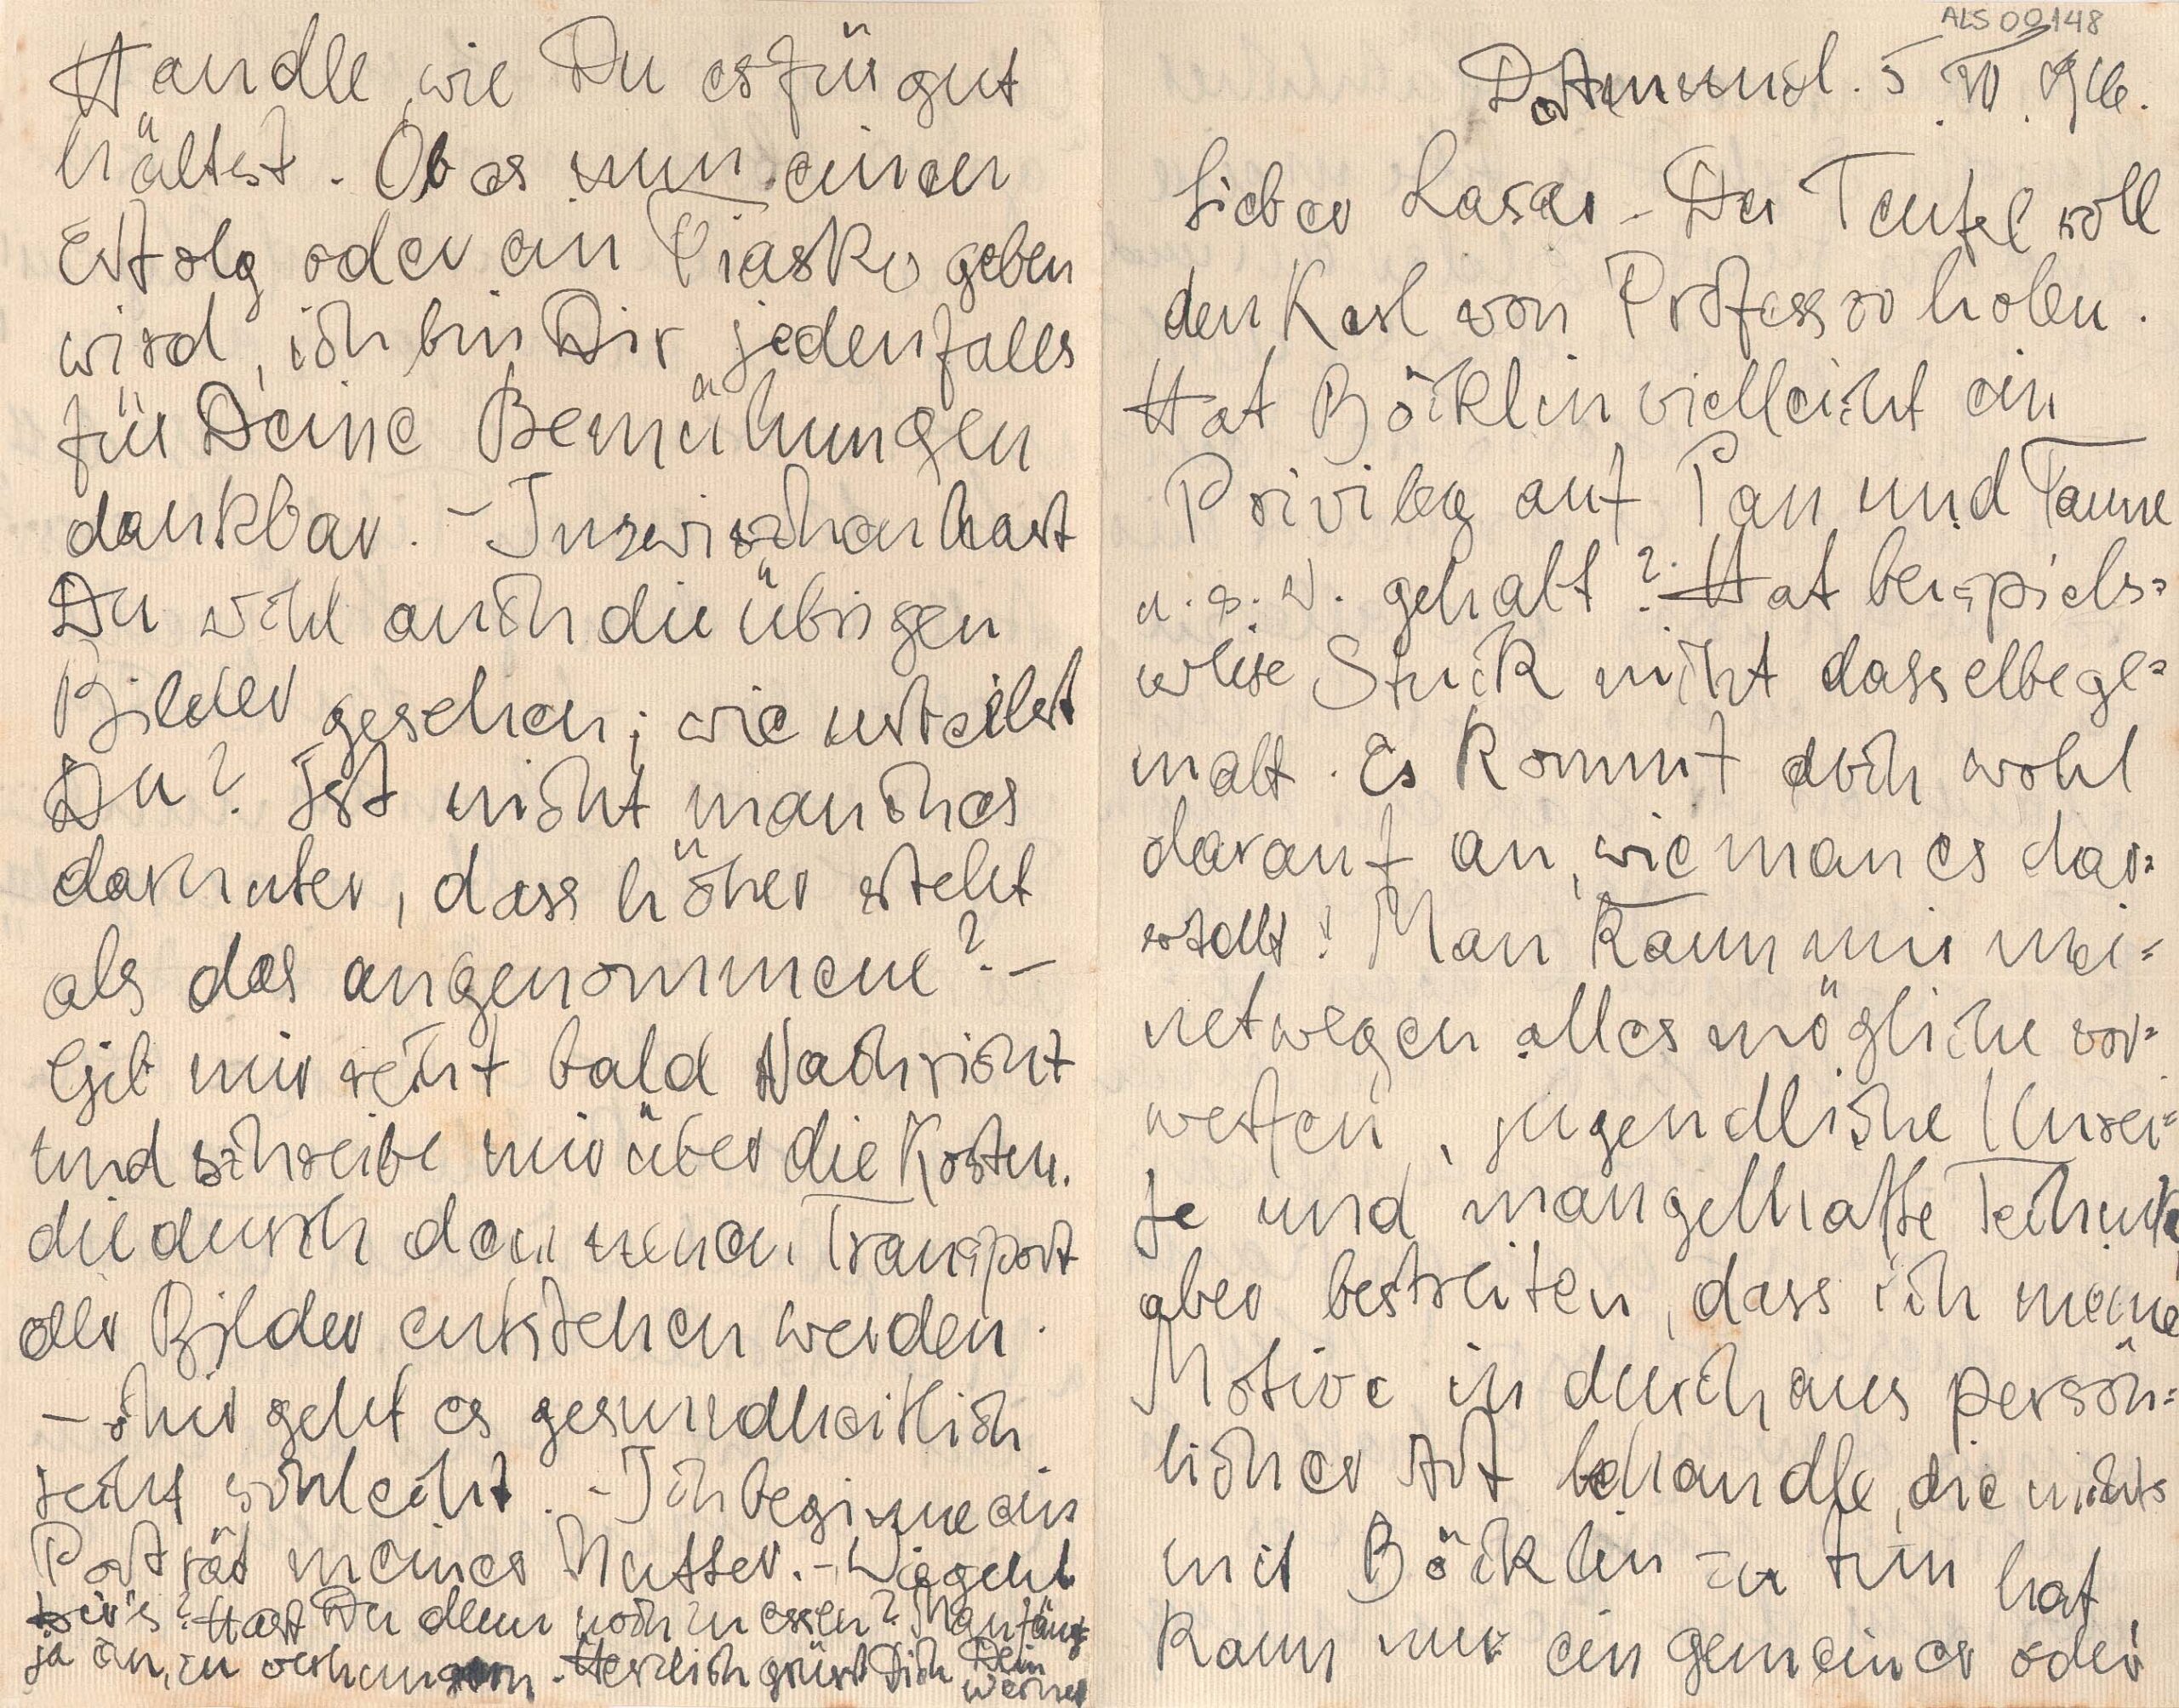 ALS 09148
Dortmund. 5. VI. 916.
Lieber Lasar - Der Teufel soll
den Kerl von Professor holen.
Hat Böcklin vielleicht ein
Privileg auf Pan und Faune
u. s. w. gehabt? Hat beispiels=
weise Stuck nicht dasselbe ge=
malt. Es kommt doch wohl
darauf an, wie man es dar=
stellt! Man kann mir mei=
netwegen alles mögliche vor=
werfen, jugendliche Unrei=
fe und mangelhafte Technik
aber bestreiten, dass ich meine
Motive in durchaus persön=
licher Art behandle, die nichts
mit Böcklin zu tun hat,
kann nur ein gemeiner oder
Handle, wie Du es für gut
hältst. Ob es nun einen
Erfolg oder ein Fiasko geben
wird, ich bin Dir jedenfalls
für Deine Bemühungen
dankbar. - Inzwischen hast
Du wohl auch die übrigen
Bilder gesehen; wie urteilst
Du? Ist nicht manches
darunter, dass höher steht
als das angenommene? -
Gib mir recht bald Nachricht
und schreibe mir über die Kosten.
die durch den neuen Transport
der Bilder entstehen werden.
- Mir geht es gesundheitlich
recht schlecht. - Ich beginne ein
Porträt meiner Mutter. - Wie geht
Dir's? Hast Du denn noch zu essen? Man fängt
ja an, zu verhungern. - Herzlich grüsst Dich Dein
Werner